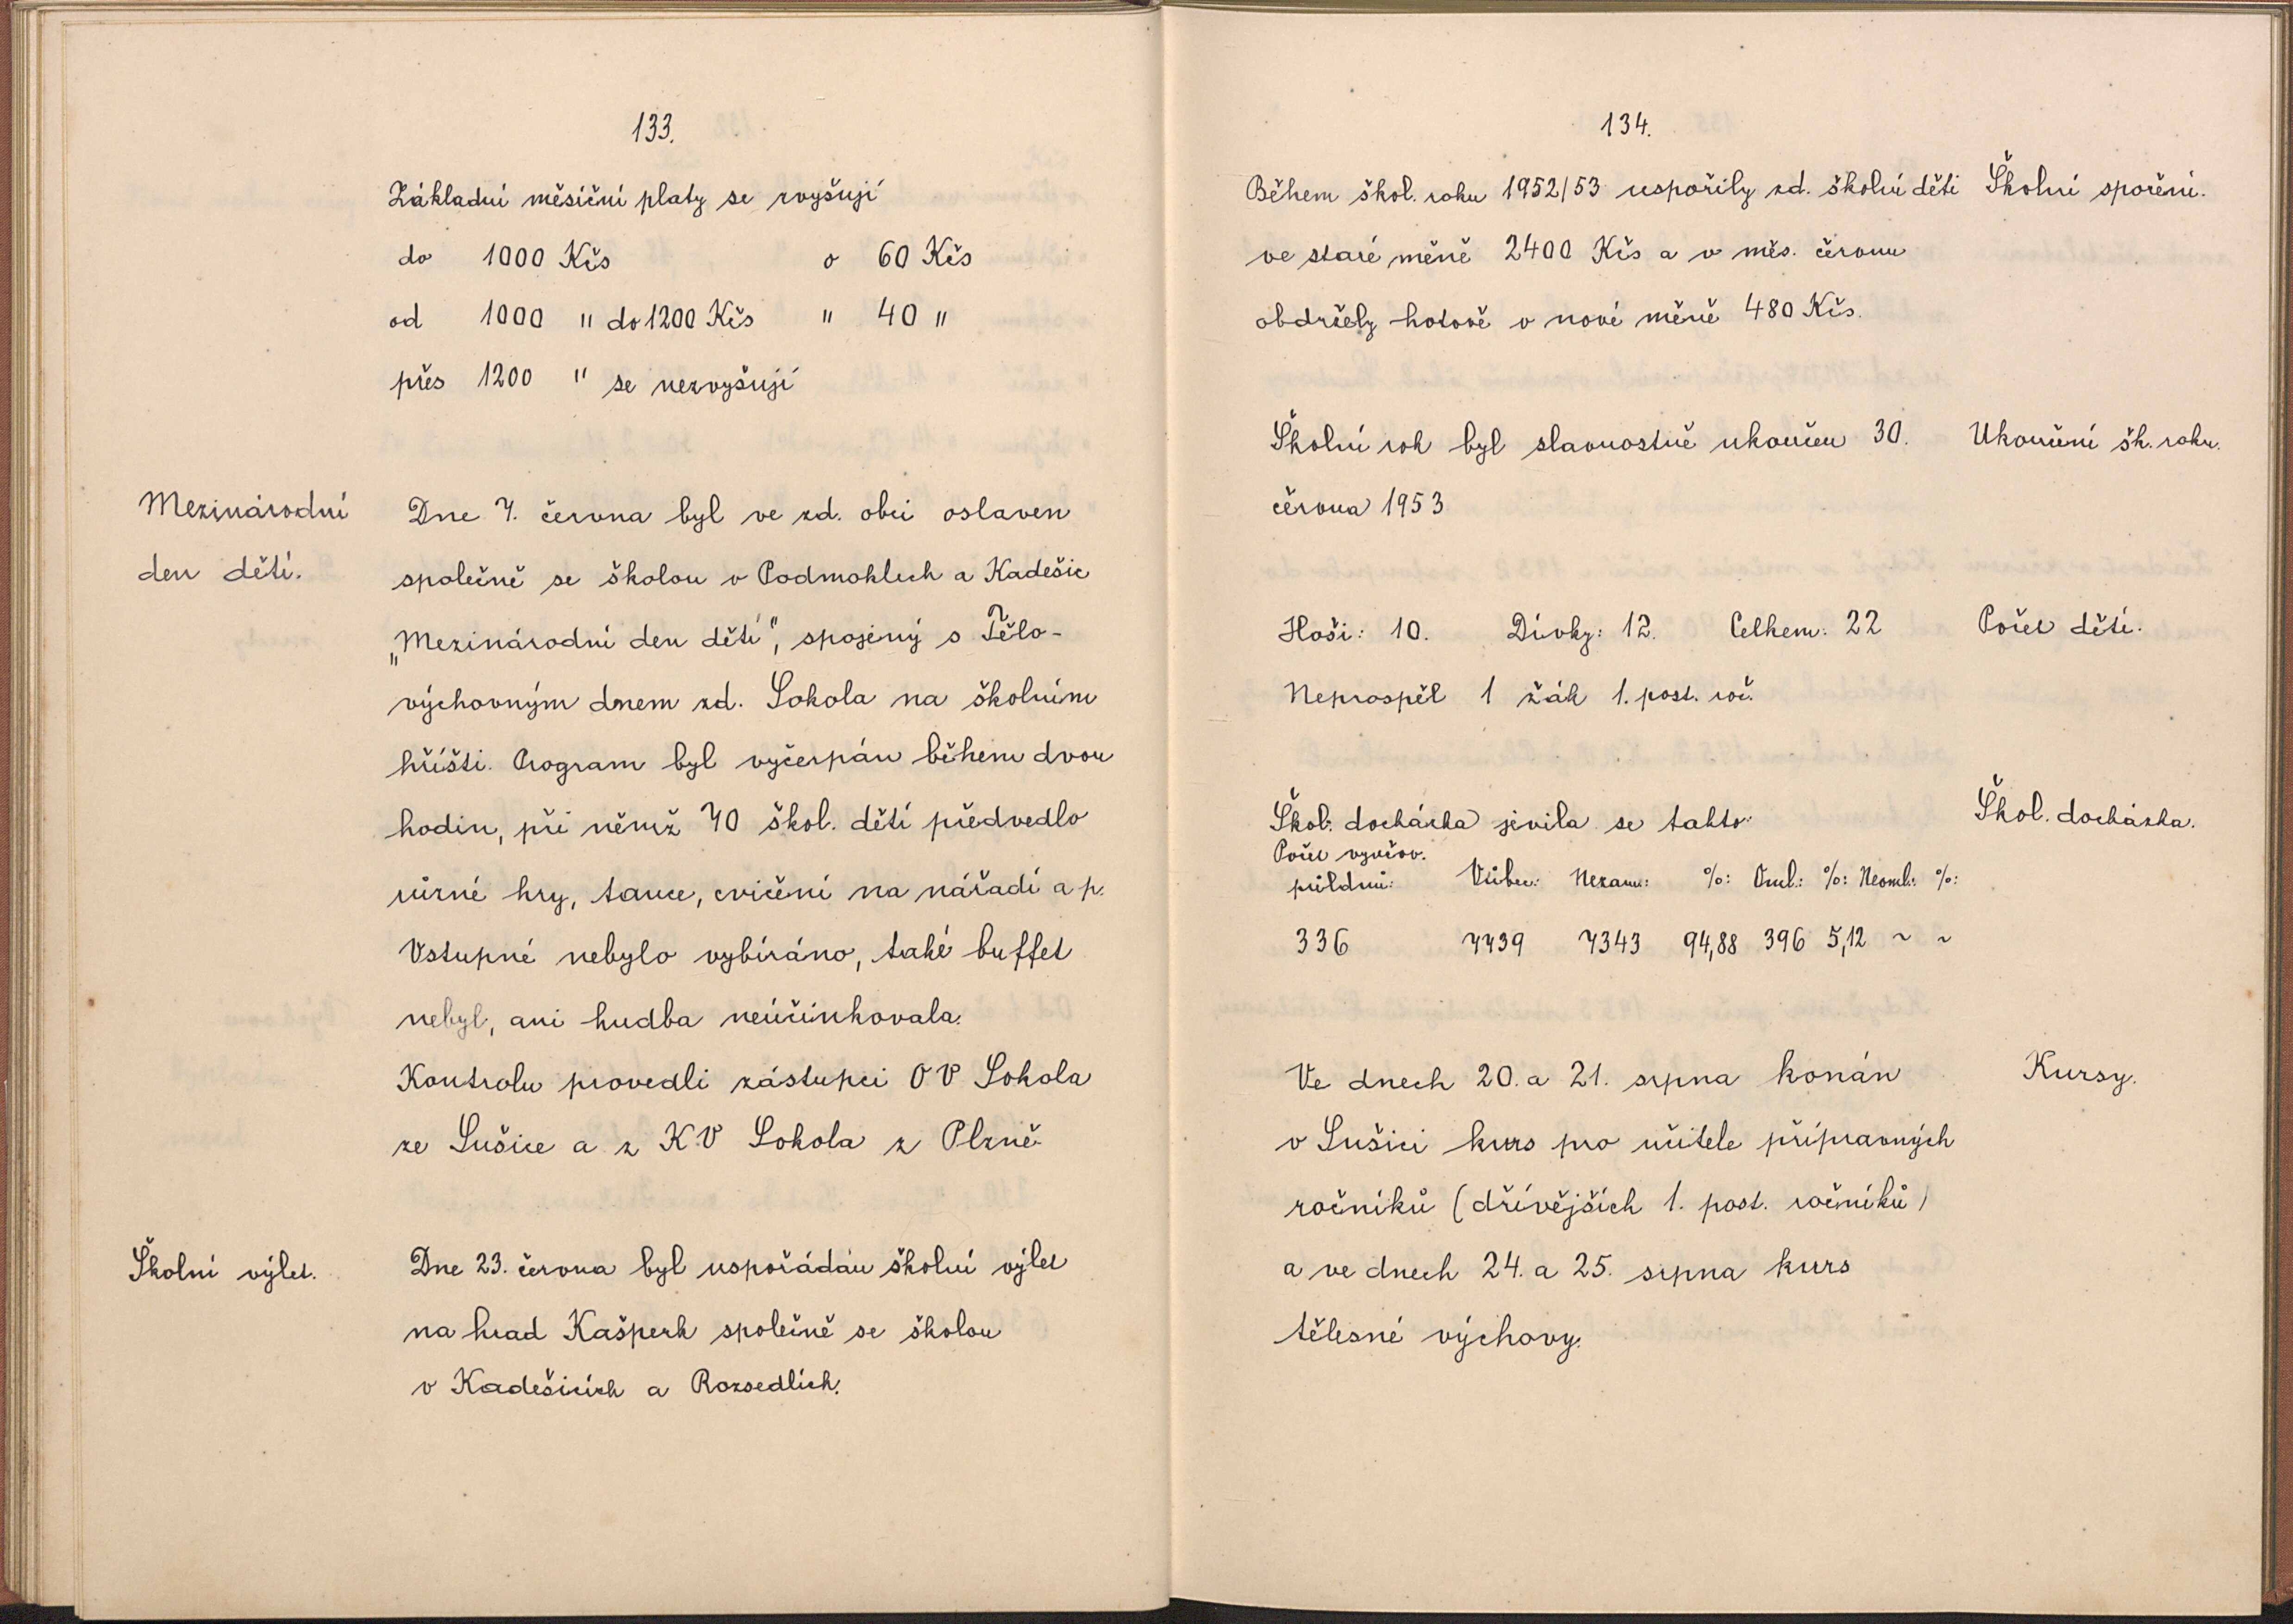 133.
Základní měsíční platy se zvyšují
do 1000 Kčs o 60 Kčs
od 1000 " do 1200 Kčs " 40 "
přes 1200 " se nezvyšují
Mezinárodní
den dětí.
Dne 7. června byl ve zd. obci oslaven
společně se školou v Podmoklech a Kadešic
„Mezinárodní den dětí", spojený s Tělo-
výchovným dnem zd. Sokola na školním
hřišti. Program byl vyčerpán během dvou
hodin, při němž 70 škol. dětí předvedlo
různé hry, tance, cvičení na nářadí a p.
Vstupné nebylo vybíráno, také buffet
nebyl, ani hudba neúčinkovala.
Kontrolu provedli zástupci OV Sokola
ze Sušice a z KV Sokola z Plzně.
Školní výlet.
Dne 23. června byl uspořádán školní výlet
na hrad Kašperk společně se školou
v Kadešicích a Rozsedlích.
134.
Během škol. roku 1952/53 uspořily zd. školní děti
ve staré měně 2400 Kčs a v měs. červnu
obdržely hotově v nové měně 480 Kčs.
Školní spoření.
Školní rok byl slavnostně ukončen 30.
června 1953
Ukončení šk. roku.
Hoši: 10. Dívky: 12. Celkem: 22
Neprospěl 1 žák 1. post. roč.
Počet dětí.
Škol. docházka jevila se takto:
Škol. docházka.
Počet vyučov.
půldnů: Vůbec: Nezam.: %: Oml.: %: Neoml.: %:
336 7739 7343 94,88 396 5,12 ~ ~
Ve dnech 20. a 21. srpna konán
v Sušici kurs pro učitele přípravných
ročníků (dřívějších 1. post. ročníků)
a ve dnech 24. a 25. srpna kurs
tělesné výchovy.
Kursy.